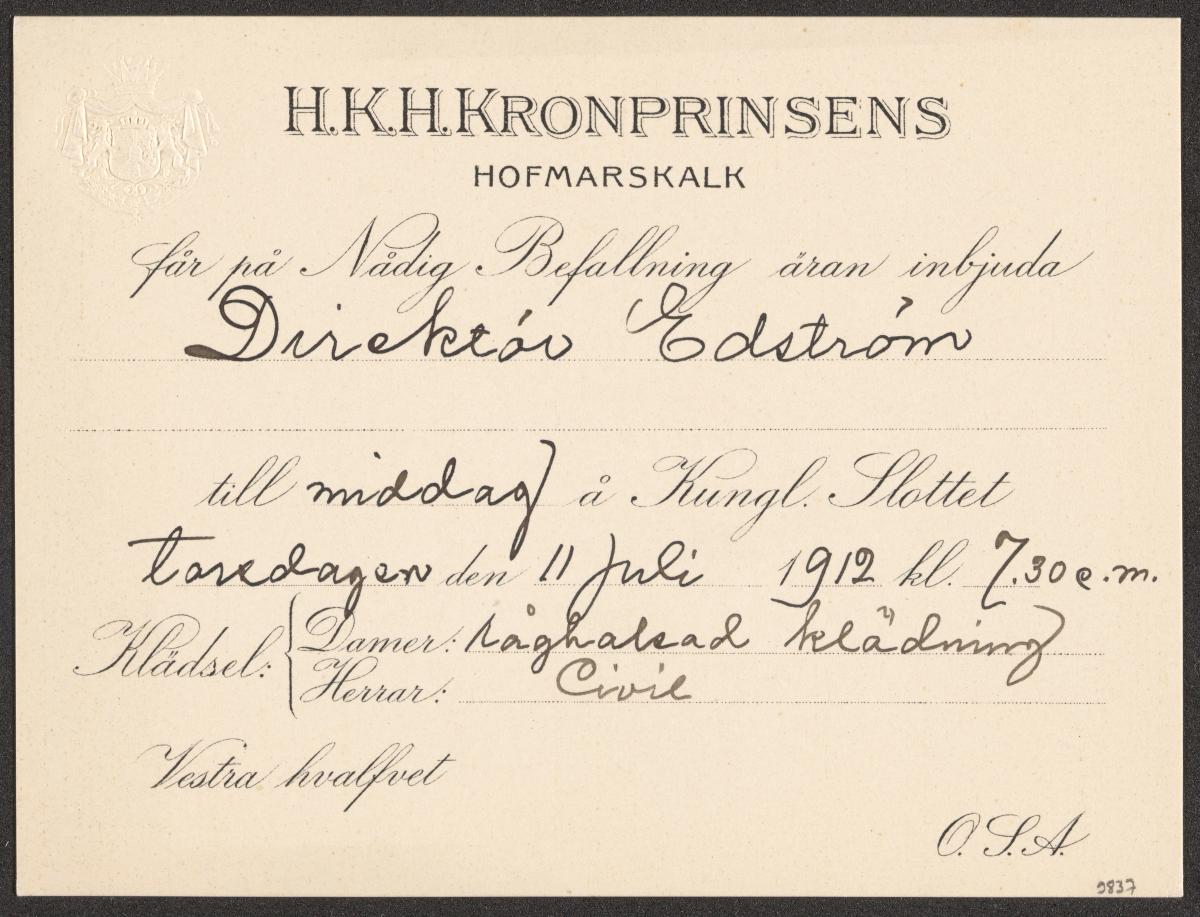 H.K.H. KRONPRINSENS
HOFMARSKALK
får på Nådig Befallning äran inbjuda
Direktör Edström
till middag å Kungl. Slottet
torsdagen den 11 Juli 1912 kl. 7.30 e.m.
Klädsel: { Damer: låghalsad klädning
Herrar: Civil
Vestra hvalfvet
O.S.A.
9837